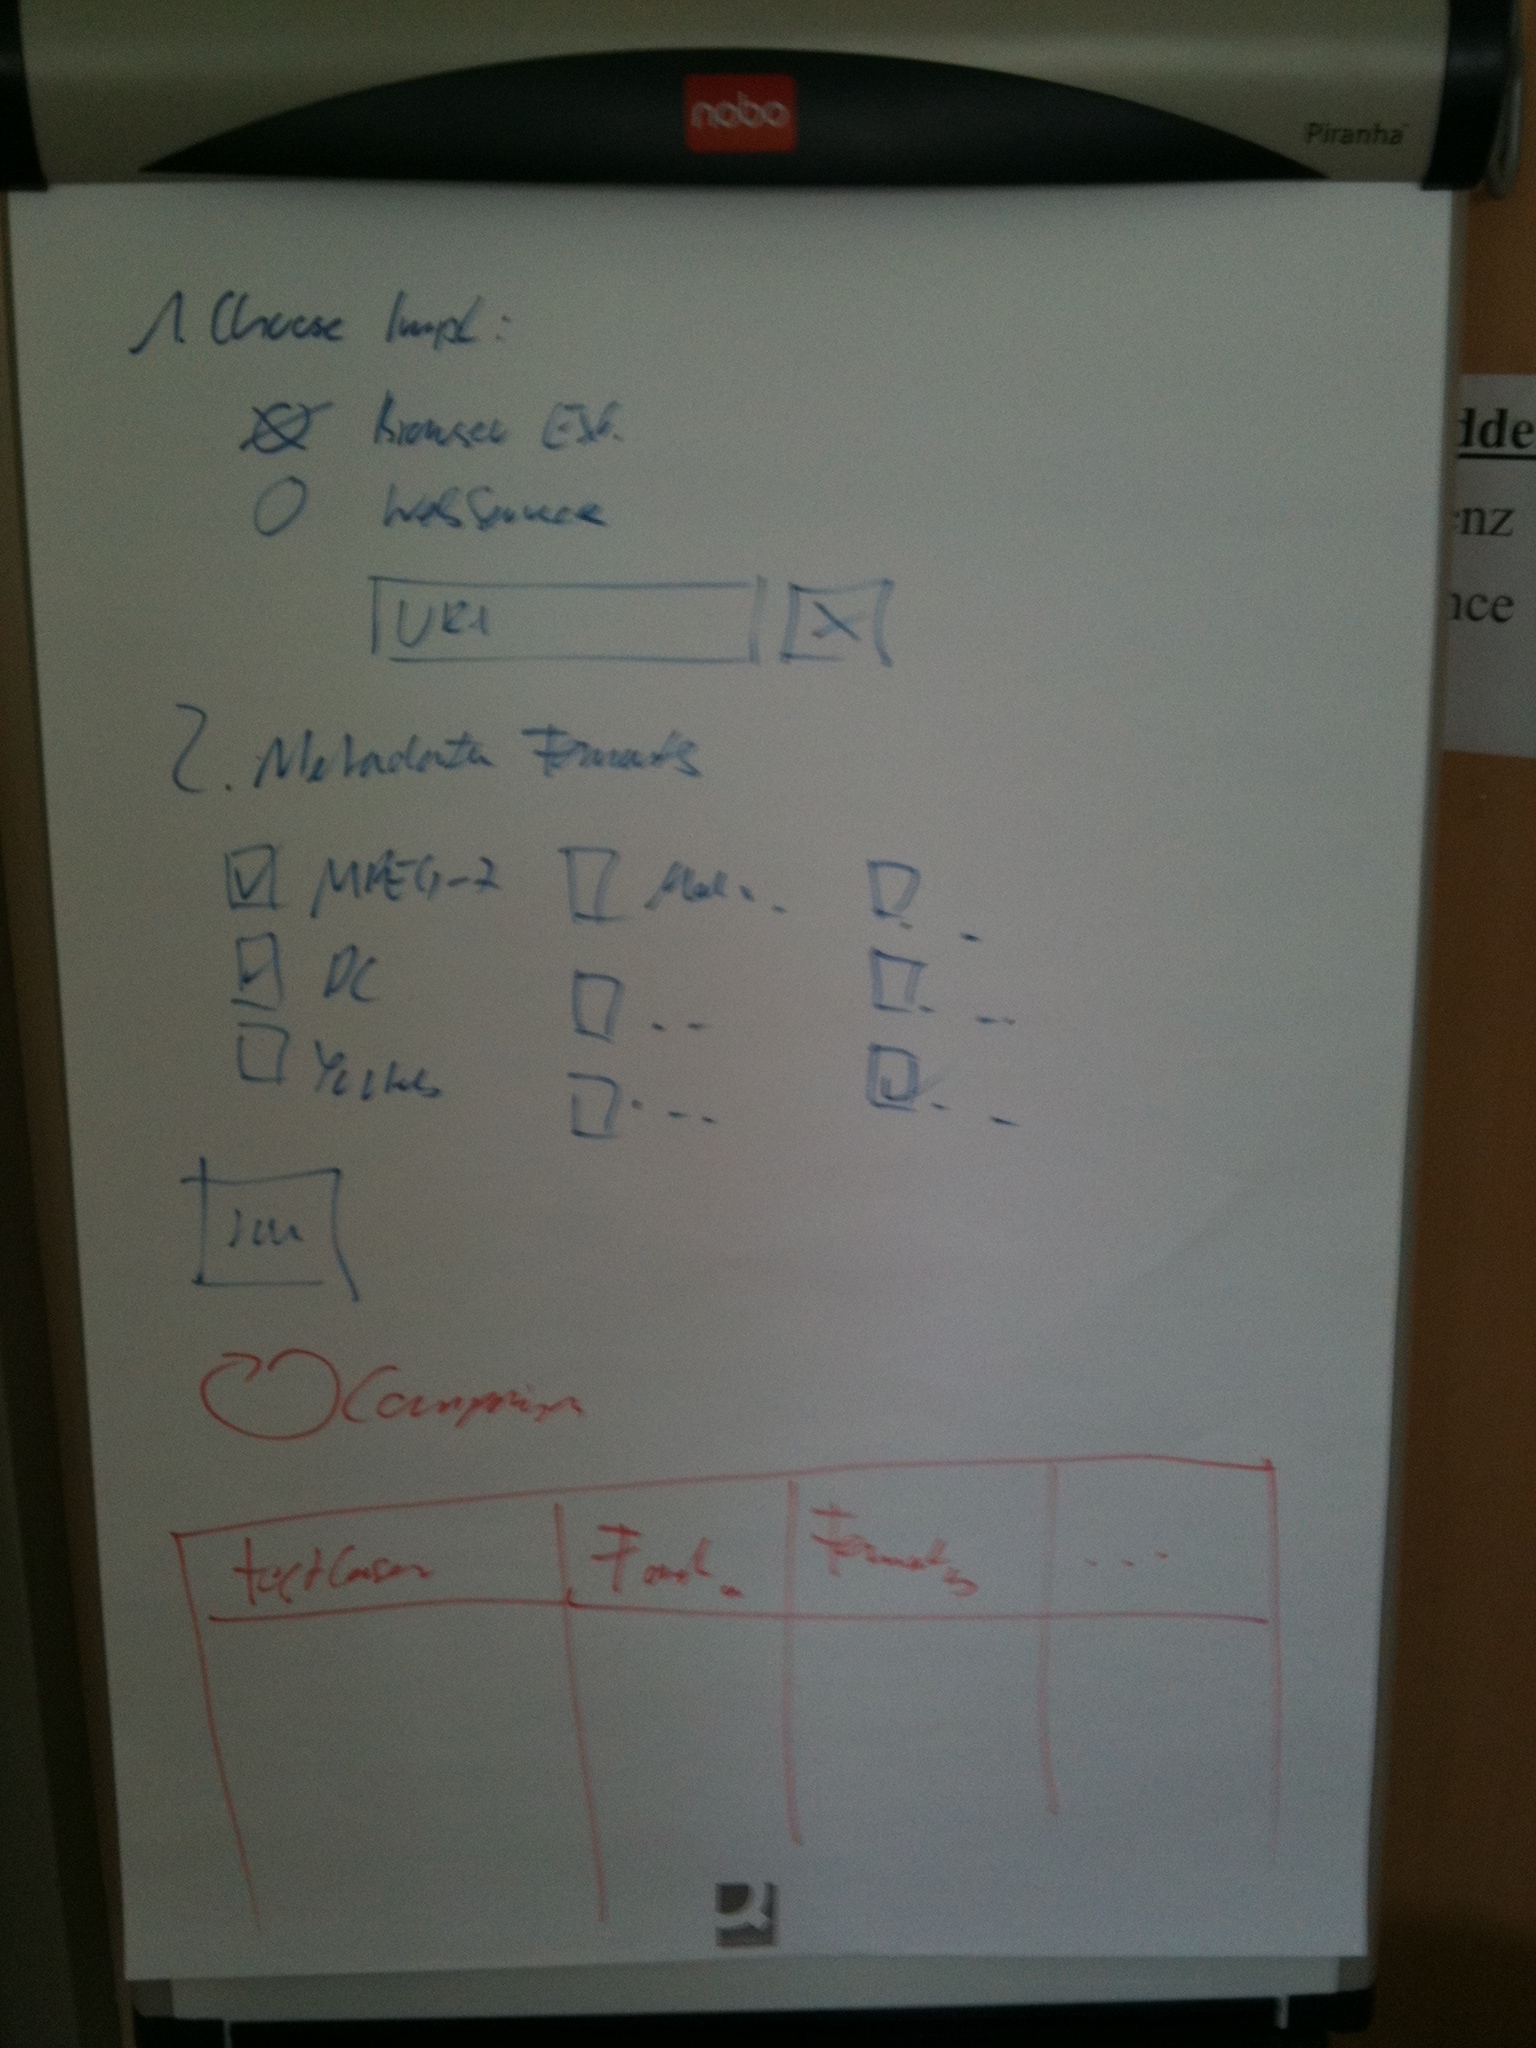 nobo
Piranha
1. Choose Impl:
Browser Ext.
WebService
URI X
2. Metadata Formats
MPEG-7
DC
Comparison
testcases Format Formats ...
dde
enz
nce